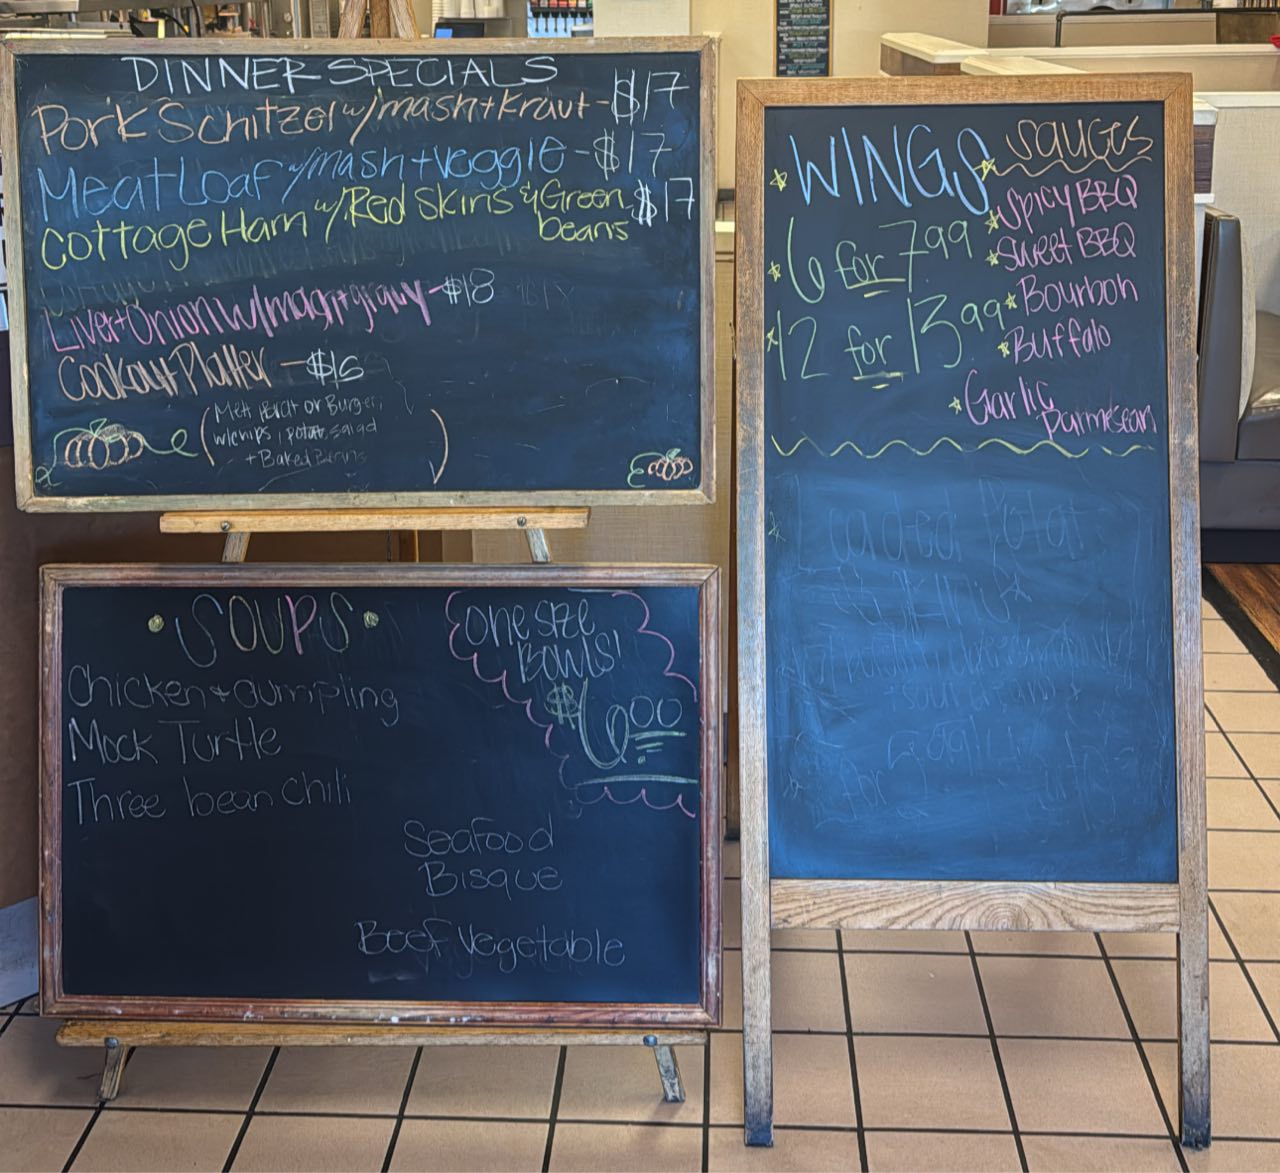 DINNER SPECIALS
Pork Schitzel w/mash+Kraut-$17
MeatLoaf w/mash+veggie-$17
Cottage Ham w/Red Skins & Green $17
beans
Liver+Onion w/mash+gravy-$18
Cookout Platter -$16
(Mett, Brat or Burger,
w/chips, potato salad
+Baked Beans)
SOUPS
Chicken+dumpling
Mock Turtle
Three bean Chili
Seafood
Bisque
Beef Vegetable
One size
Bowls!
$600
WINGS
6 for 7.99
12 for 13.99
Sauces
Spicy BBQ
Sweet BBQ
Bourbon
Buffalo
Garlic
parmesean